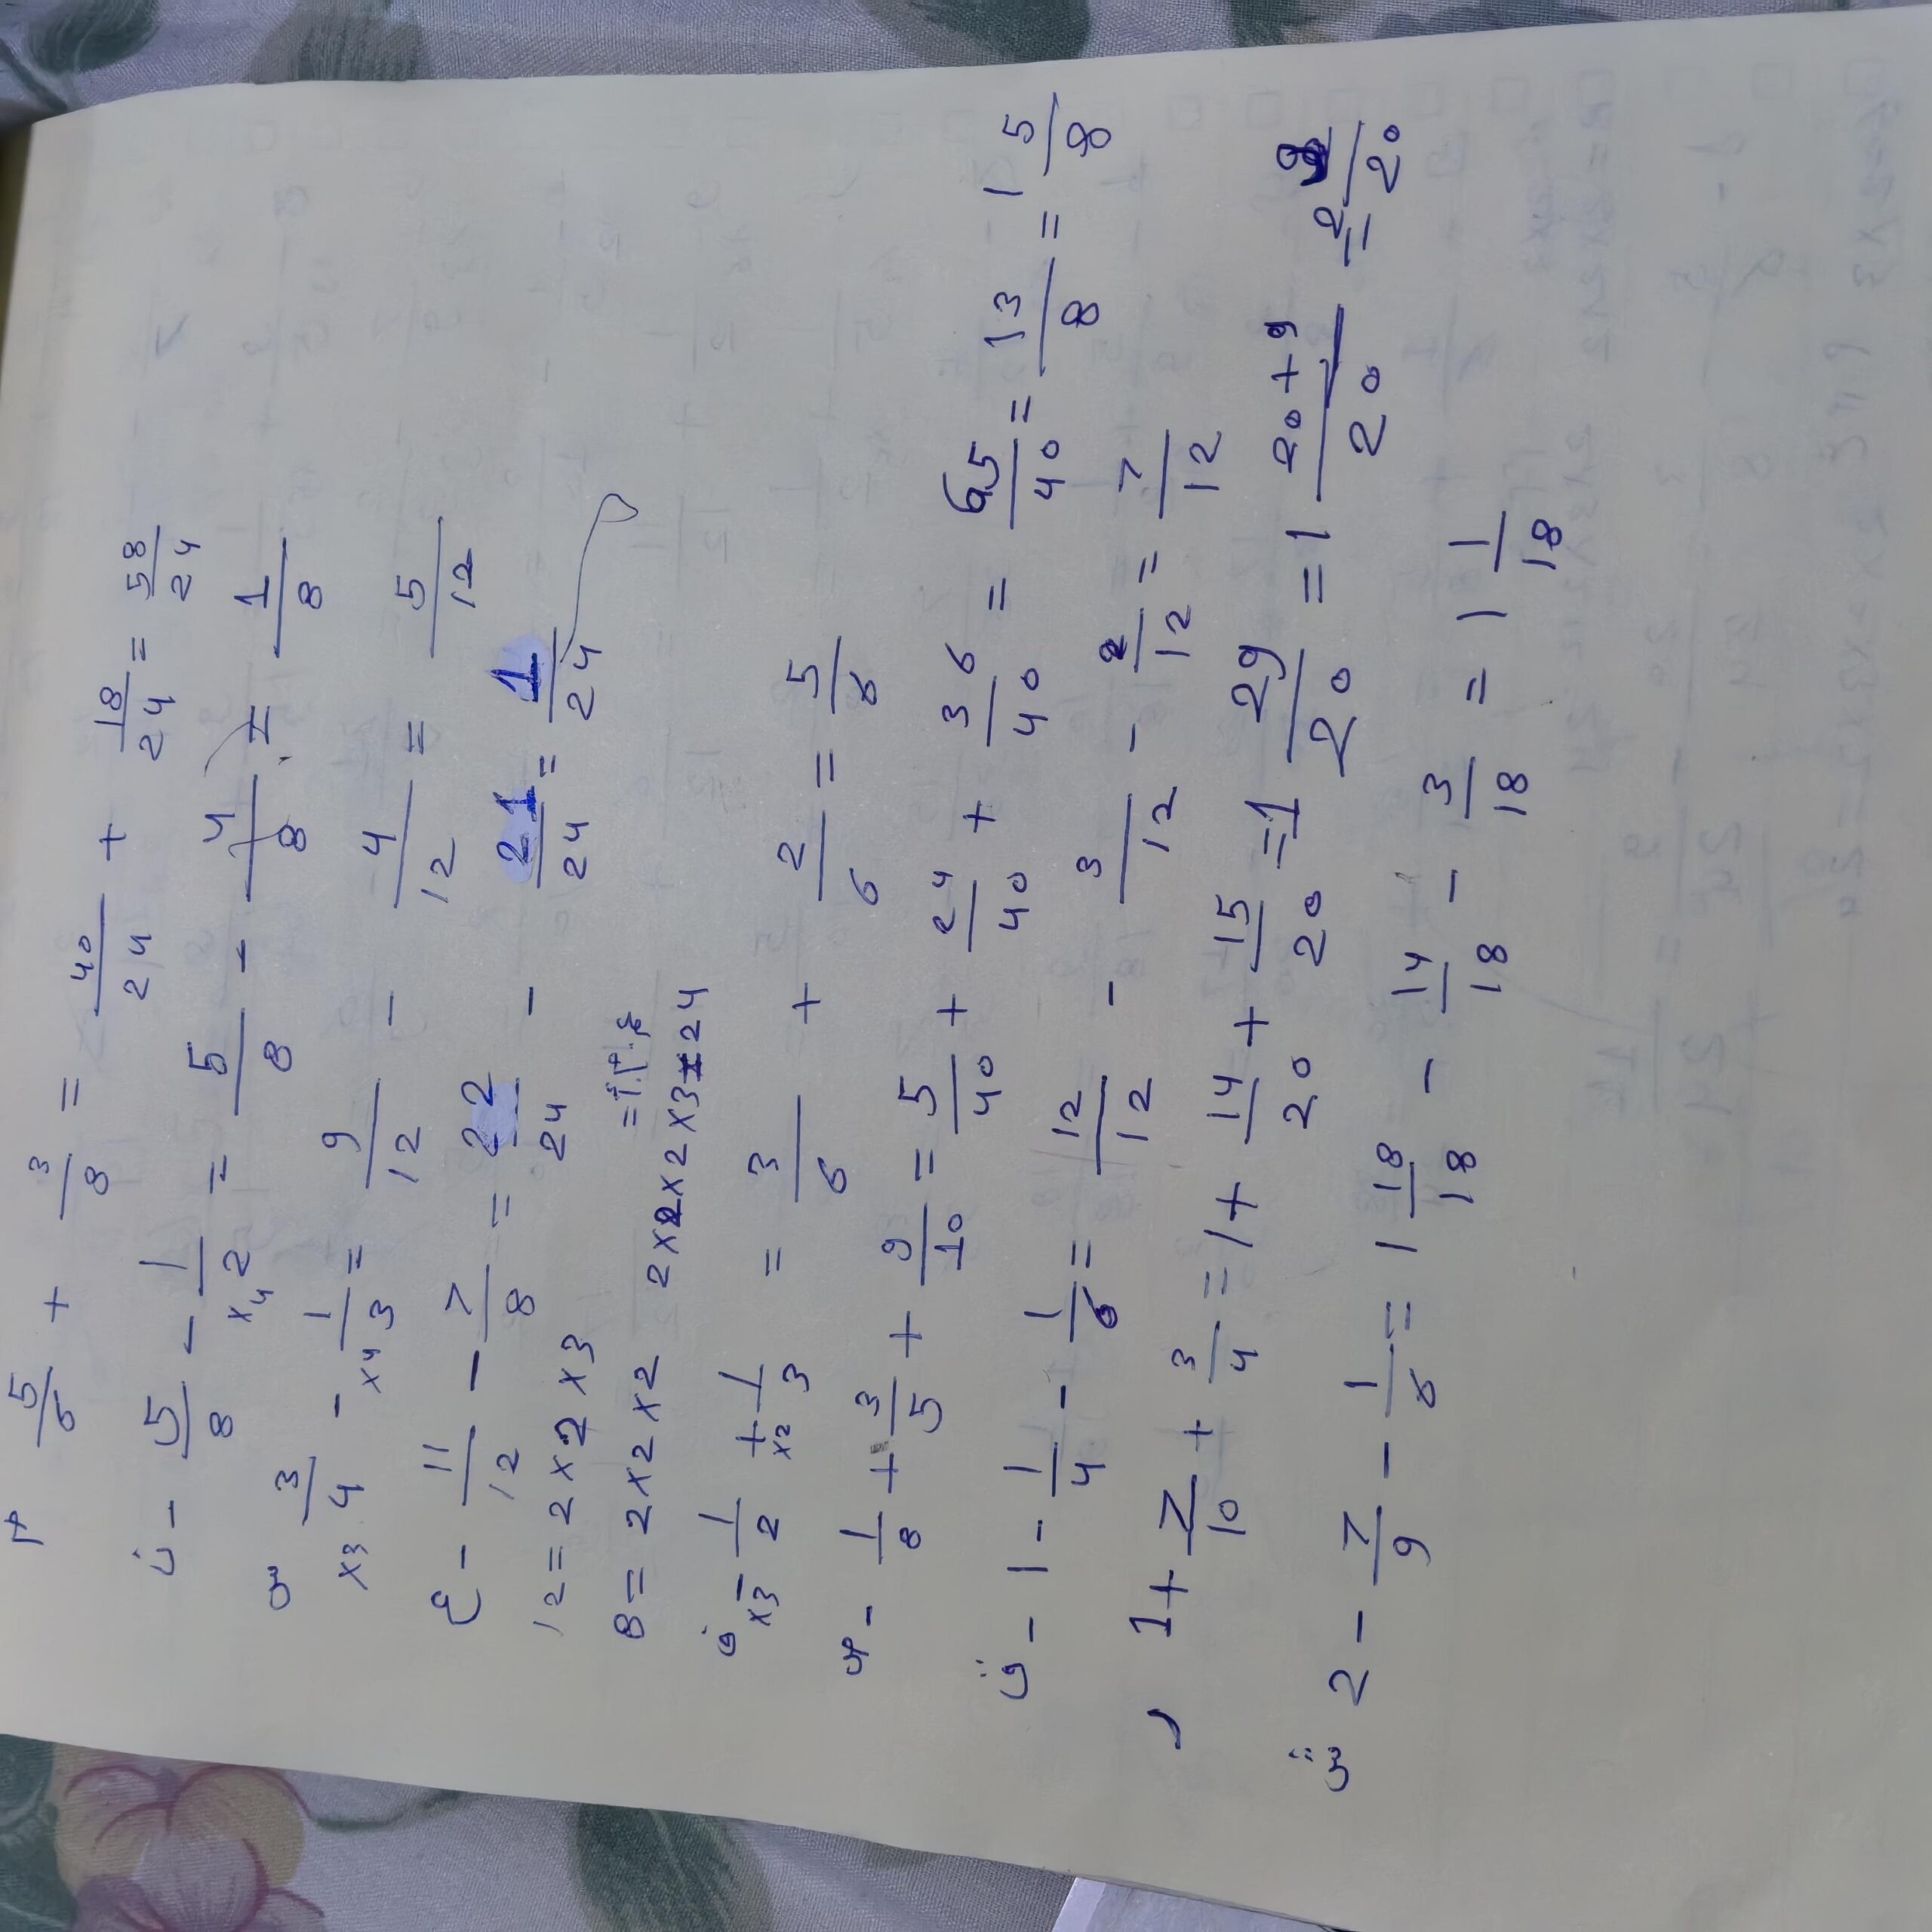 5/6 + 3/8 = 40/24 + 18/24 = 58/24
5/8 - 1/2 ×4 = 5/8 - 4/8 = 1/8
×3 3/4 - ×4 1/3 = 9/12 - 4/12 = 5/12
11/12 - 7/8 = 22/24 - 21/24 = 1/24
12 = 2×2×3
8 = 2×2×2 2×2×2×3=24
×3 1/2 + ×2 1/3 = 3/6 + 2/6 = 5/6
1/8 + 3/5 + 9/10 = 5/40 + 24/40 + 36/40 = 65/40 = 13/8 = 1 5/8
1 - 1/4 - 1/6 = 12/12 - 3/12 - 2/12 = 7/12
1 + 7/10 + 3/4 = 1 + 14/20 + 15/20 = 1 29/20 = 1 20+9/20 = 2 9/20
2 - 7/9 - 1/6 = 1 18/18 - 14/18 - 3/18 = 1 1/18